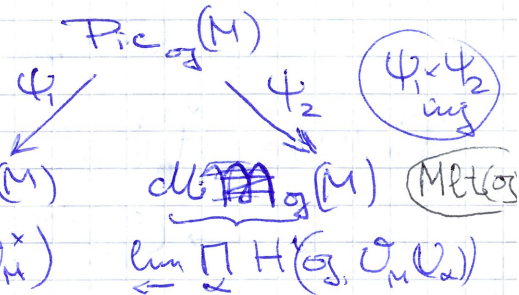 Pic_𝔤(M)
ψ₁ ψ₂ ψ₁×ψ₂
inj
(M) _𝔤(M)
_M^×) lim ∏_α H(𝔤, 𝒪_M(U_α))